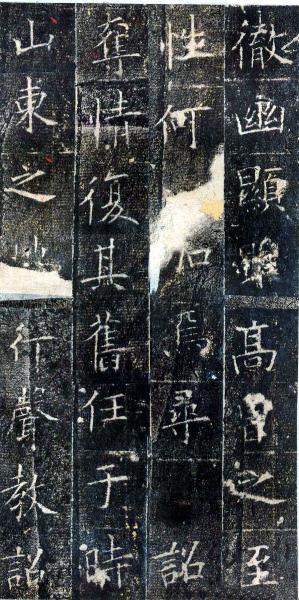 徹幽顯雖高曾之至
性何以焉尋詔
奪情復其舊任于時
山東之地行聲教詔